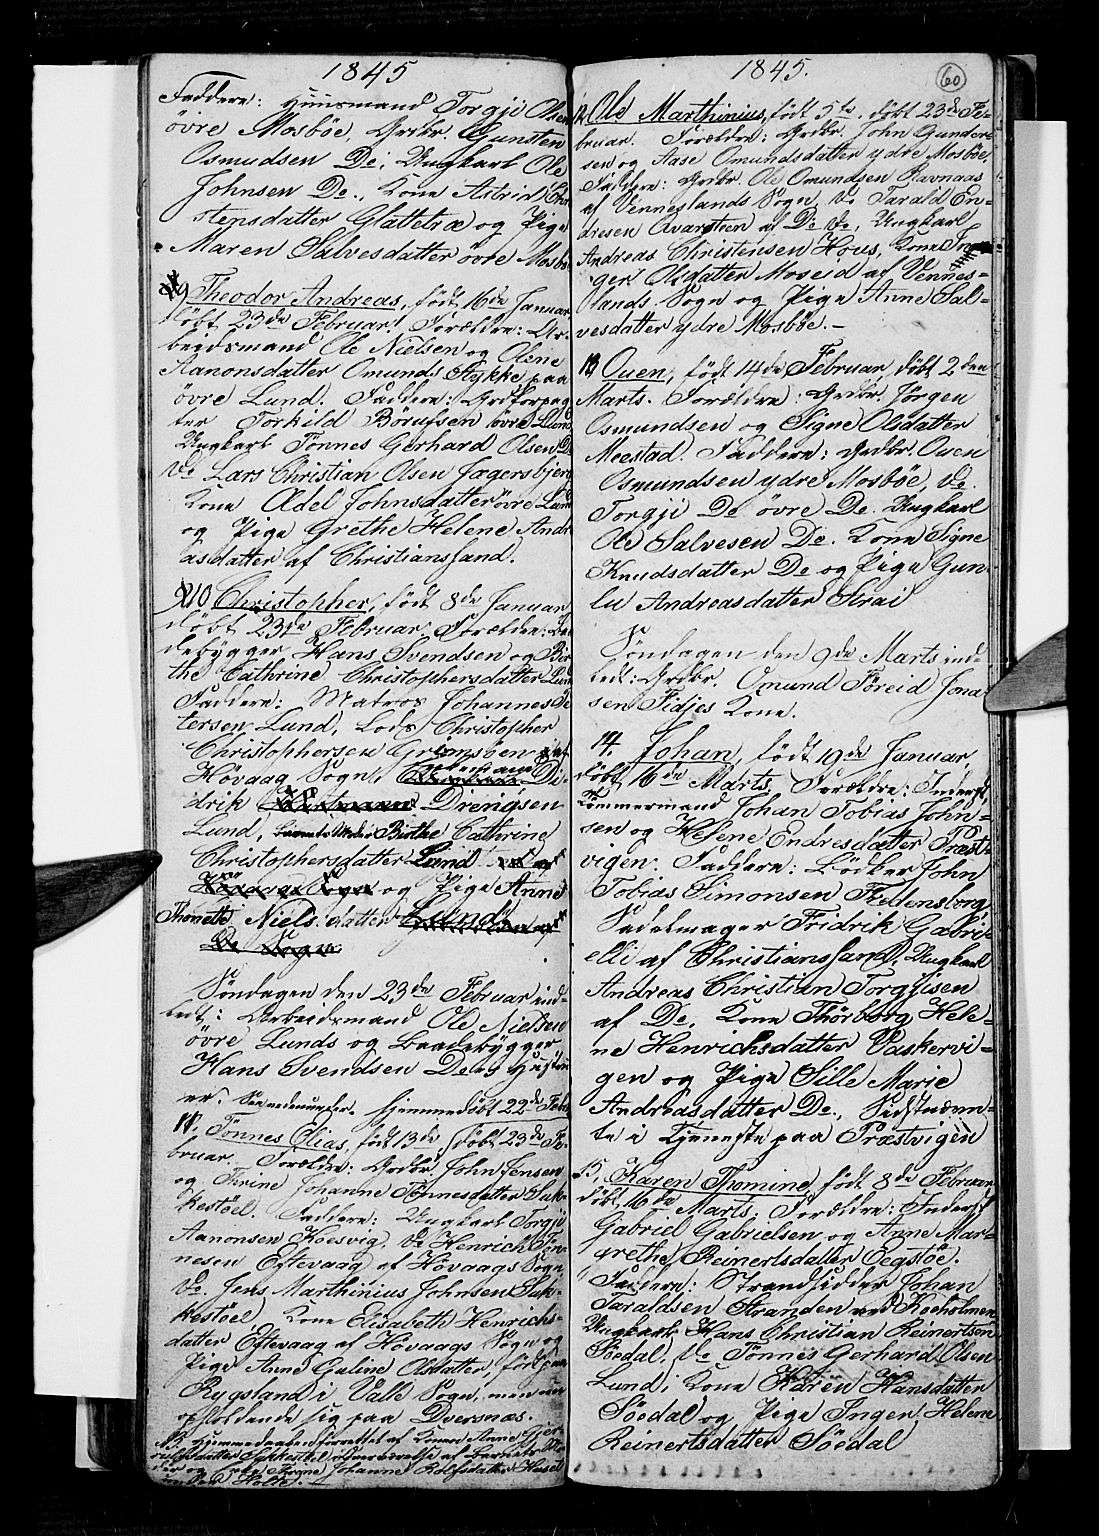 1845
Faddere: Huusmand Torgji Olsen
övre Mosböe, Grdbr. Gunsten
Osmudsen De., Ungkarl Ole
Johnsen De., Kone Astrid Chri
stensdatter Glattetræ og Pige
Maren Salvesdatter övre Mosbö
9 Theodor Andreas, födt 16de Januar
döbt 23de Februar. Forældre: Ar-
beidsmand Ole Nielsen og Olene
Aanonsdatter Omunds Stykke paa
övre Lund. Faddere: Grdforpag-
ter Torkild Börufsen övre Lund
Ungkarl Tönnes Gerhard Olsen De
do Lars Christian Olsen Jægersbjerg
Kone Adel Johnsdatter övre Lund
og Pige Grethe Helene Andre
asdatter af Christianssand.
10 Christopher, födt 8de Januar
döbt 23de Februar. Forældre: Baa
debygger Hans Svendsen og Bir
the Cathrine Christophersdatter Lund
Faddere: Matros Johannes Pe
tersen Lund, Lods Christopher
Christophersen Grimsöen af
Hövaag Sogn, Di-
drik Drengsen
Lund, Birthe Cathrine
Christophersdatter Lund
og Pige Anne
Thonette Niels datter
De Sogn
Söndagen den 23de Februar ind-
ledt: Arbeidsmand Ole Nielsen
övre Lunds og Baadebygger
Hans Svendsen Des Hustru
er. hjemmedöbt 22de Feb
11. Tönnes Elias, födt 13de, döbt 23de Fe
bruar. Forældre: Grdbr. John Jensen
og Thrine Johanne Tönnesdatter Suk-
kestöel. Faddere: Ungkarl Torgji
Aanonsen Koesvig, do Henrich Tön-
nesen Eftevaag af Hövaags Sogn
do. Jens Marthinius Johnsen Suk-
kestöel, Kone Elisabeth Henrichs-
datter Eftevaag af Hövaags Sogn og
Pige Anne Guline Olsdatter, födt paa
Rygsland i Valle Sogn, men nu
opholdende sig paa Dversnæs.
NB. Hjemmedaaben forrettet af Konen Anne Gjer-
datter Sukkestöel i Overværelse af Barnets Mo-
der og Pigen Johanne Rolfsdatter Huset
under Holte. —
1845.
60
12 Ole Marthinius, födt 5te, döbt 23de Fe-
bruar. Forældre: Grdbr. John Gunder-
sen og Aase Omundsdatter ydre Mosböe,
Faddere: Grdbr. Ole Omundsen Ravnaas
af Venneslands Sogn, do Tarald En-
dresen Qvarsteen af De do, Ungkarl
Andreas Christensen Hous, Kone In-
ger Olsdatter Moseid af Vennes-
lands Sogn og Pige Anne Sal-
vesdatter ydre Mosböe. —
13 Ouen, födt 14de Februar döbt 2den
Marts. Forældre: Grdbr. Jörgen
Osmundsen og Signe Olsdatter
Meestad. Faddere: Grdbr. Ouen
Osmundsen ydre Mosböe, do.
Torgji De övre De. Ungkarl
Ole Salvesen De. Kone Signe
Knudsdatter De og Pige Gun-
lu Andreasdatter Strai
Söndagen den 9de Marts ind-
ledt: Grdbr. Omund Föreid Jona-
sen Fidjes Kone.
14. Johan, födt 19de Januar,
döbt 16de Marts, Forældre: Inderst,
Tömmermand Johan Tobias John-
sen og Helene Endresdatter Præst-
vigen. Faddere: Bödker John
Tobias Simonsen Fredensborg
Sadelmager Fridrik Gabri-
elli af Christianssand, Ungkarl
Andreas Christian Torgjisen
af De, Kone Thorborg Hele-
ne Henrichsdatter Vaskervi-
gen og Pige Sille Marie
Andreasdatter De., Sidstnævn-
te i Tjeneste paa Præstvigen
15. Karen Thomine, födt 8de Februar
döbt 16de Marts. Forældre: Inderst
Gabriel Gabrielsen og Anne Mar-
grethe Reinertsdatter Oegstöe.
Faddere: Strandsidder Johan
Taraldsen Stranden ved Koeholmen
Ungkarl Hans Christian Reinertsen
Söedal, do Tönnes Gerhard Olsen
Lund, Kone Karen Hansdatter
Söedal og Pige Inger Helene
Reinertsdatter Söedal